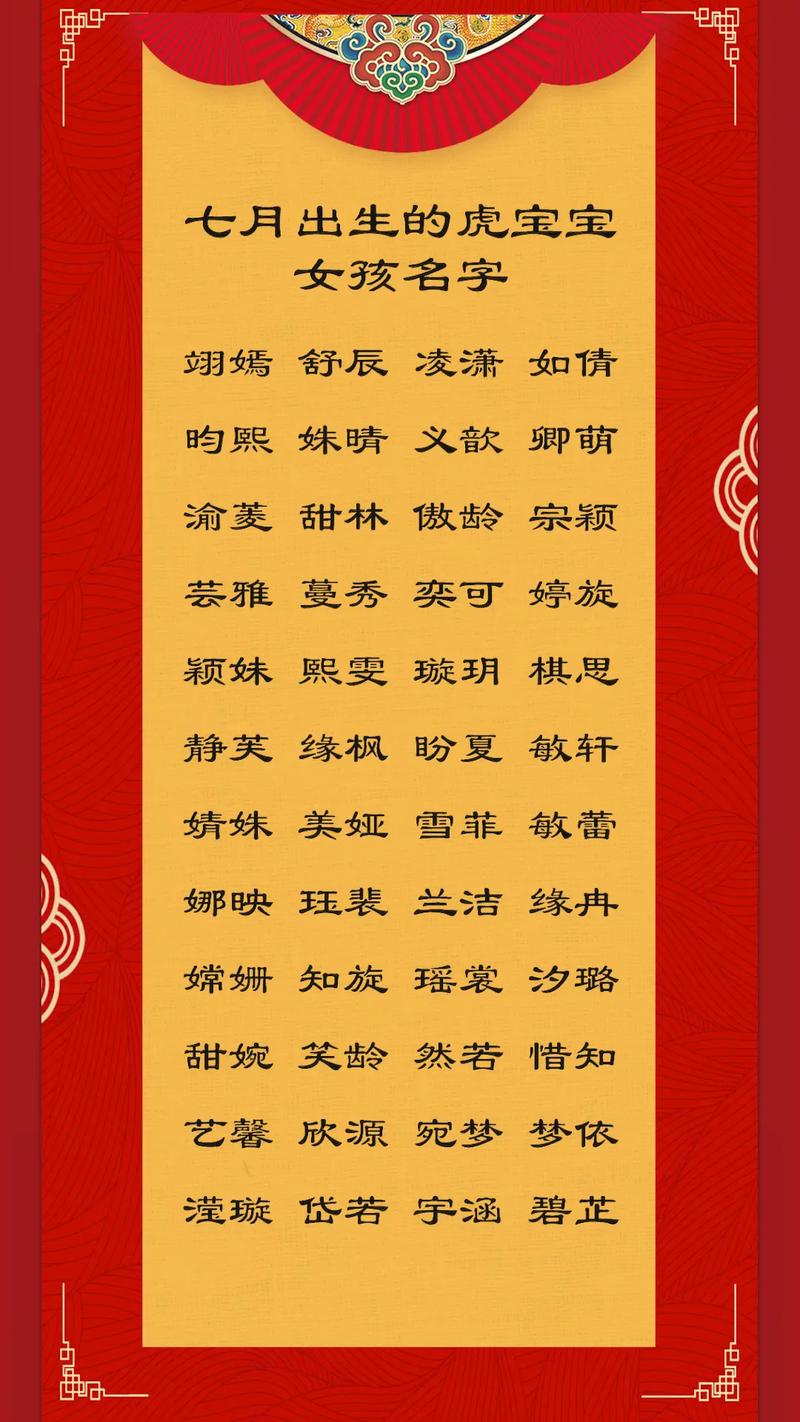 七月出生的虎宝宝
女孩名字
翊嫣 舒辰 凌潇 如倩
昀熙 姝晴 义歆 卿萌
渝菱 甜林 傲龄 宗颖
芸雅 蔓秀 奕可 婷旋
颖姝 熙雯 璇玥 棋思
静芙 缘枫 盼夏 敏轩
婧姝 美娅 雪菲 敏蕾
娜映 珏裴 兰洁 缘冉
嫦姗 知旋 瑶裳 汐璐
甜婉 笑龄 然若 惜知
艺馨 欣源 宛梦 梦依
滢璇 岱若 宇涵 碧芷